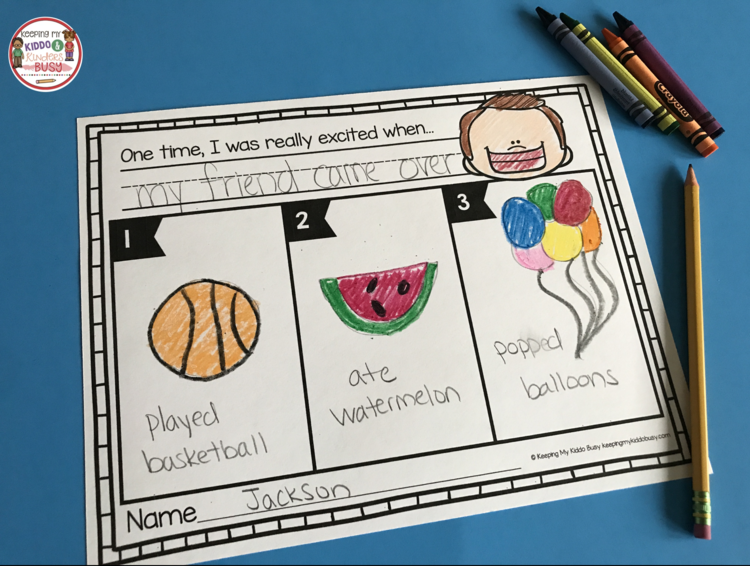 KEEPING MY
KIDDO &
kinders
BUSY
One time, I was really excited when...
my friend came over
1
2
3
played
basketball
ate
watermelon
popped
balloons
© Keeping My Kiddo Busy keepingmykiddobusy.com
Name Jackson
Crayola